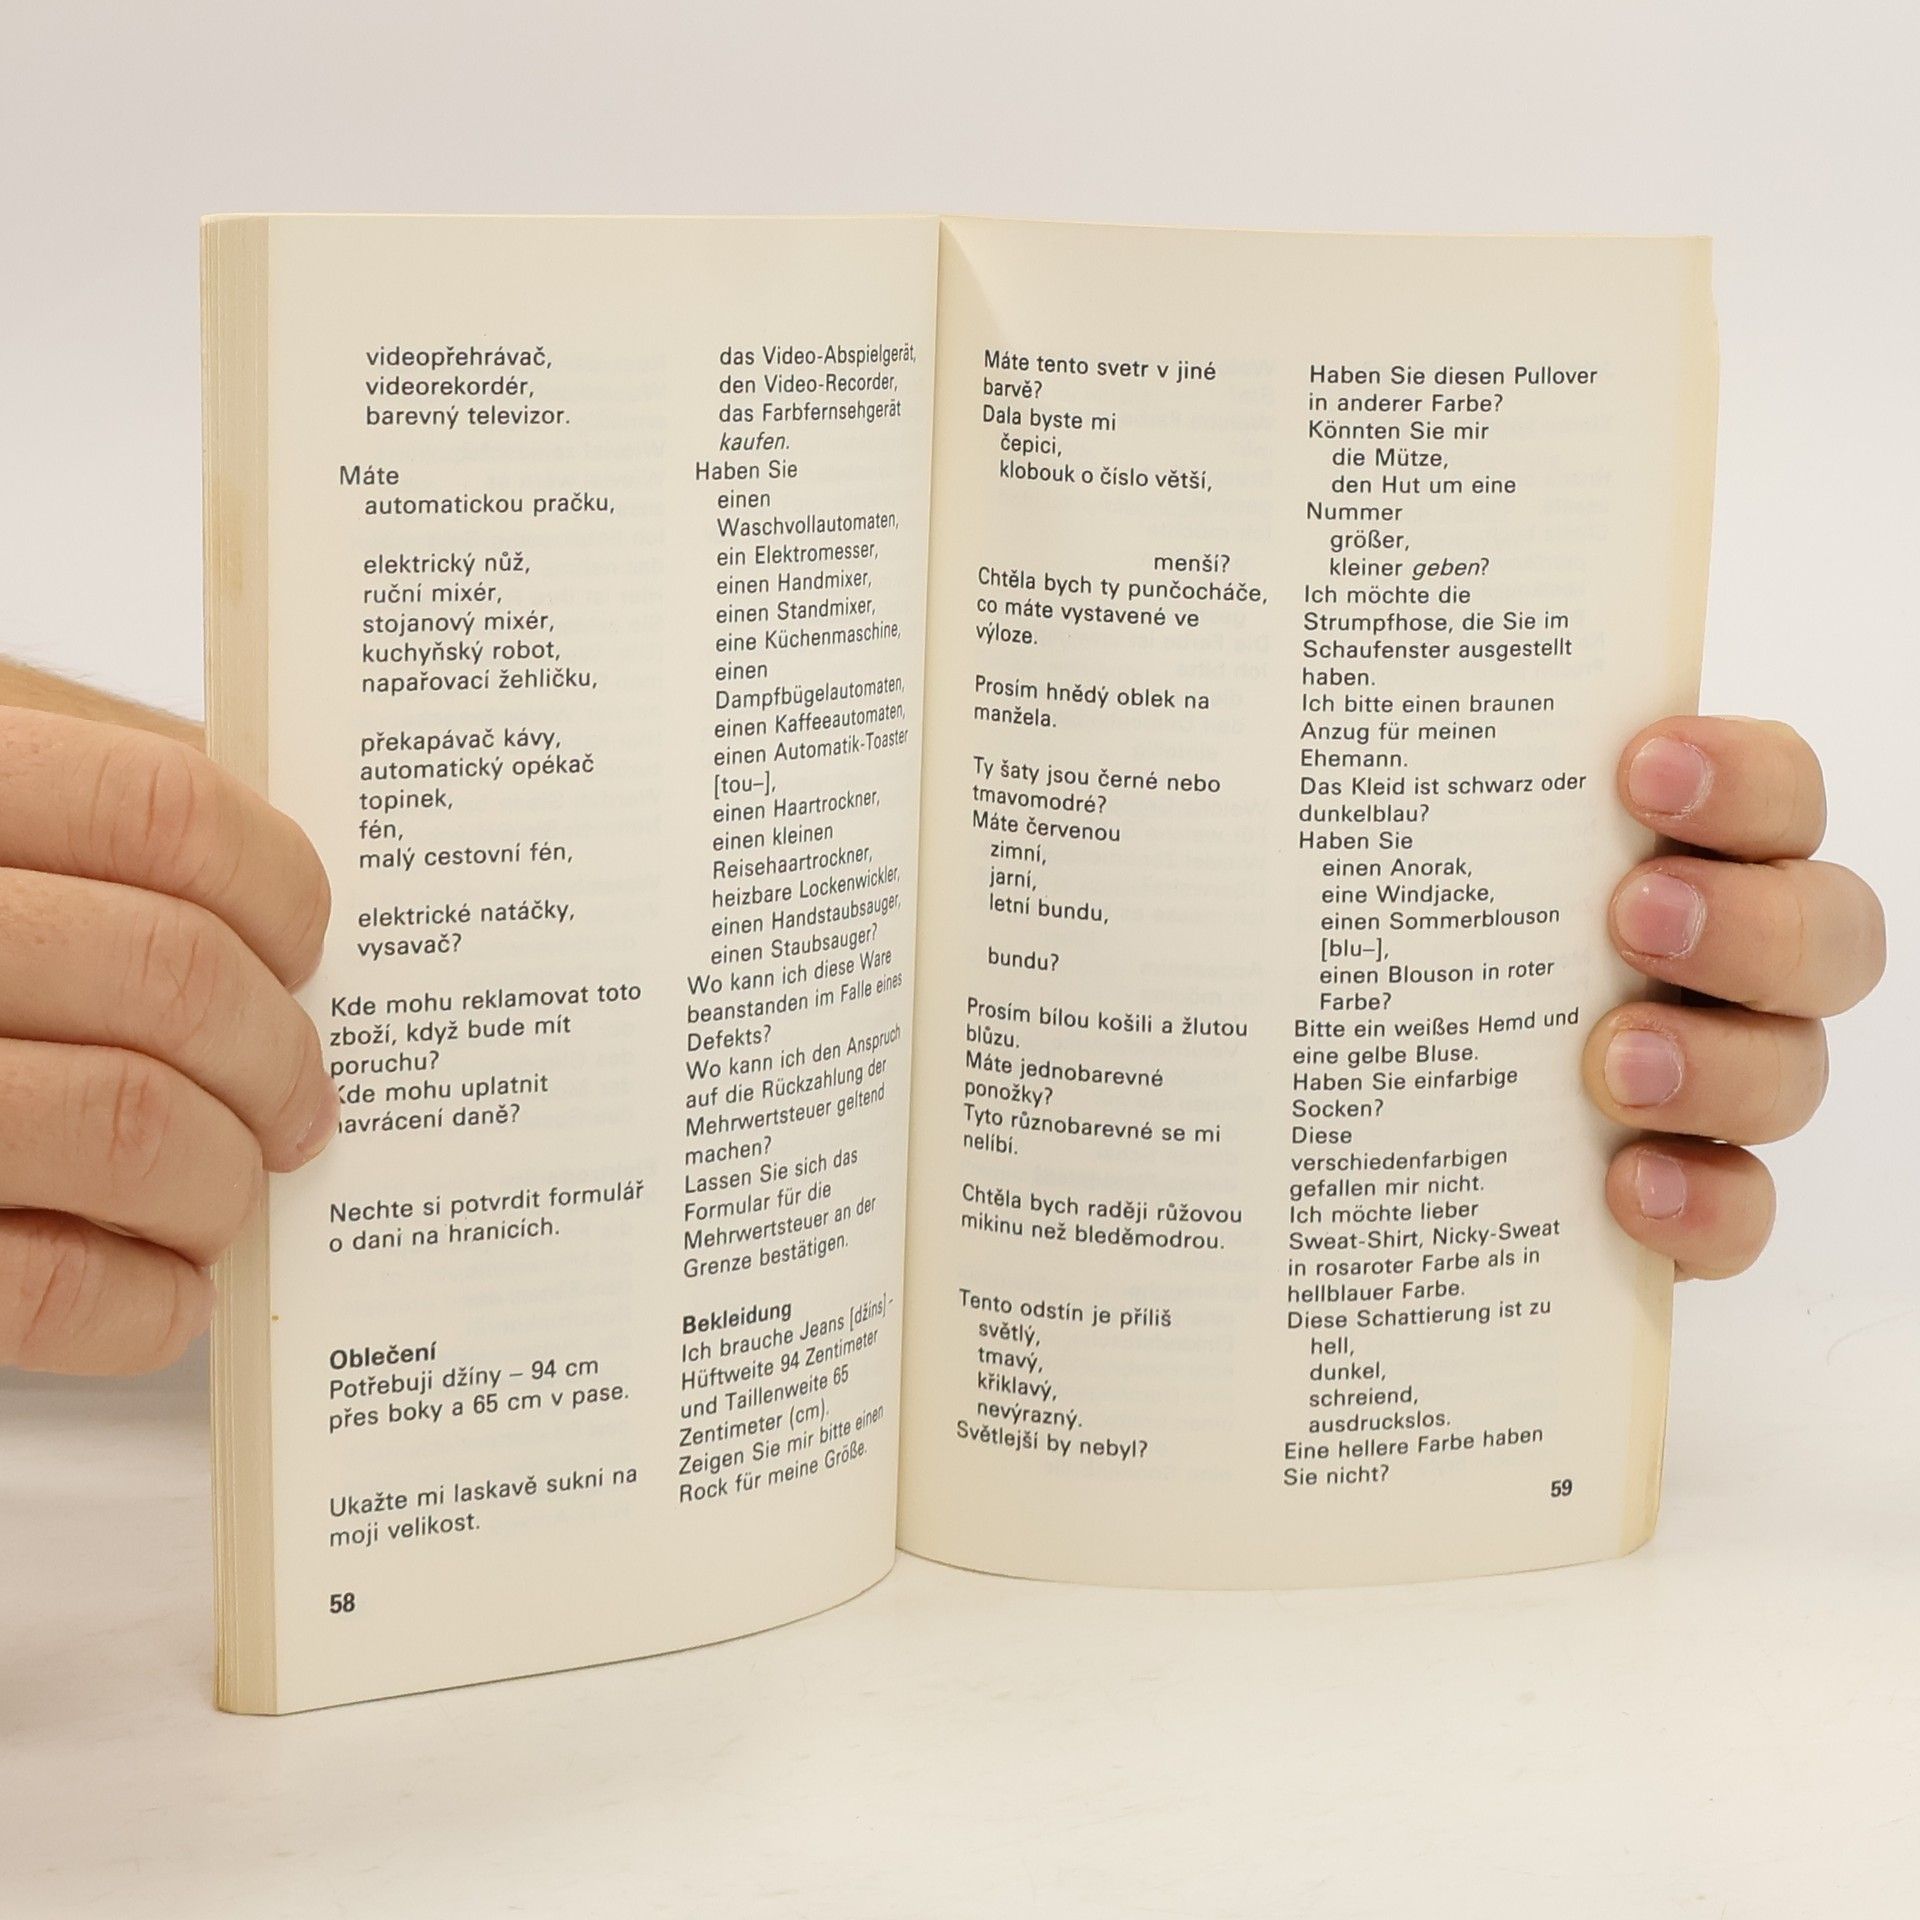 videopřehrávač,
videorekordér,
barevný televizor.
Máte
automatickou pračku,
elektrický nůž,
ruční mixér,
stojanový mixér,
kuchyňský robot,
napařovací žehličku,
překapávač kávy,
automatický opékač
topinek,
fén,
malý cestovní fén,
elektrické natáčky,
vysavač?
Kde mohu reklamovat toto
zboží, když bude mít
poruchu?
Kde mohu uplatnit
navrácení daně?
Nechte si potvrdit formulář
o dani na hranicích.
Oblečení
Potřebuji džíny – 94 cm
přes boky a 65 cm v pase.
Ukažte mi laskavě sukni na
moji velikost.
58
das Video-Abspielgerät,
den Video-Recorder,
das Farbfernsehgerät
kaufen.
Haben Sie
einen
Waschvollautomaten,
ein Elektromesser,
einen Handmixer,
einen Standmixer,
eine Küchenmaschine,
einen
Dampfbügelautomaten,
einen Kaffeeautomaten,
einen Automatik-Toaster
[tou–],
einen Haartrockner,
einen kleinen
Reisehaartrockner,
heizbare Lockenwickler,
einen Handstaubsauger,
einen Staubsauger?
Wo kann ich diese Ware
beanstanden im Falle eines
Defekts?
Wo kann ich den Anspruch
auf die Rückzahlung der
Mehrwertsteuer geltend
machen?
Lassen Sie sich das
Formular für die
Mehrwertsteuer an der
Grenze bestätigen.
Bekleidung
Ich brauche Jeans [džíns] -
Hüftweite 94 Zentimeter
und Taillenweite 65
Zentimeter (cm).
Zeigen Sie mir bitte einen
Rock für meine Größe.
Máte tento svetr v jiné
barvě?
Dala byste mi
čepici,
klobouk o číslo větší,
menší?
Chtěla bych ty punčocháče,
co máte vystavené ve
výloze.
Prosím hnědý oblek na
manžela.
Ty šaty jsou černé nebo
tmavomodré?
Máte červenou
zimní,
jarní,
letní bundu,
bundu?
Prosím bílou košili a žlutou
blůzu.
Máte jednobarevné
ponožky?
Tyto různobarevné se mi
nelíbí.
Chtěla bych raději růžovou
mikinu než bleděmodrou.
Tento odstín je příliš
světlý,
tmavý,
křiklavý,
nevýrazný.
Světlejší by nebyl?
Haben Sie diesen Pullover
in anderer Farbe?
Könnten Sie mir
die Mütze,
den Hut um eine
Nummer
größer,
kleiner geben?
Ich möchte die
Strumpfhose, die Sie im
Schaufenster ausgestellt
haben.
Ich bitte einen braunen
Anzug für meinen
Ehemann.
Das Kleid ist schwarz oder
dunkelblau?
Haben Sie
einen Anorak,
eine Windjacke,
einen Sommerblouson
[blu–],
einen Blouson in roter
Farbe?
Bitte ein weißes Hemd und
eine gelbe Bluse.
Haben Sie einfarbige
Socken?
Diese
verschiedenfarbigen
gefallen mir nicht.
Ich möchte lieber
Sweat-Shirt, Nicky-Sweat
in rosaroter Farbe als in
hellblauer Farbe.
Diese Schattierung ist zu
hell,
dunkel,
schreiend,
ausdruckslos.
Eine hellere Farbe haben
Sie nicht?
59